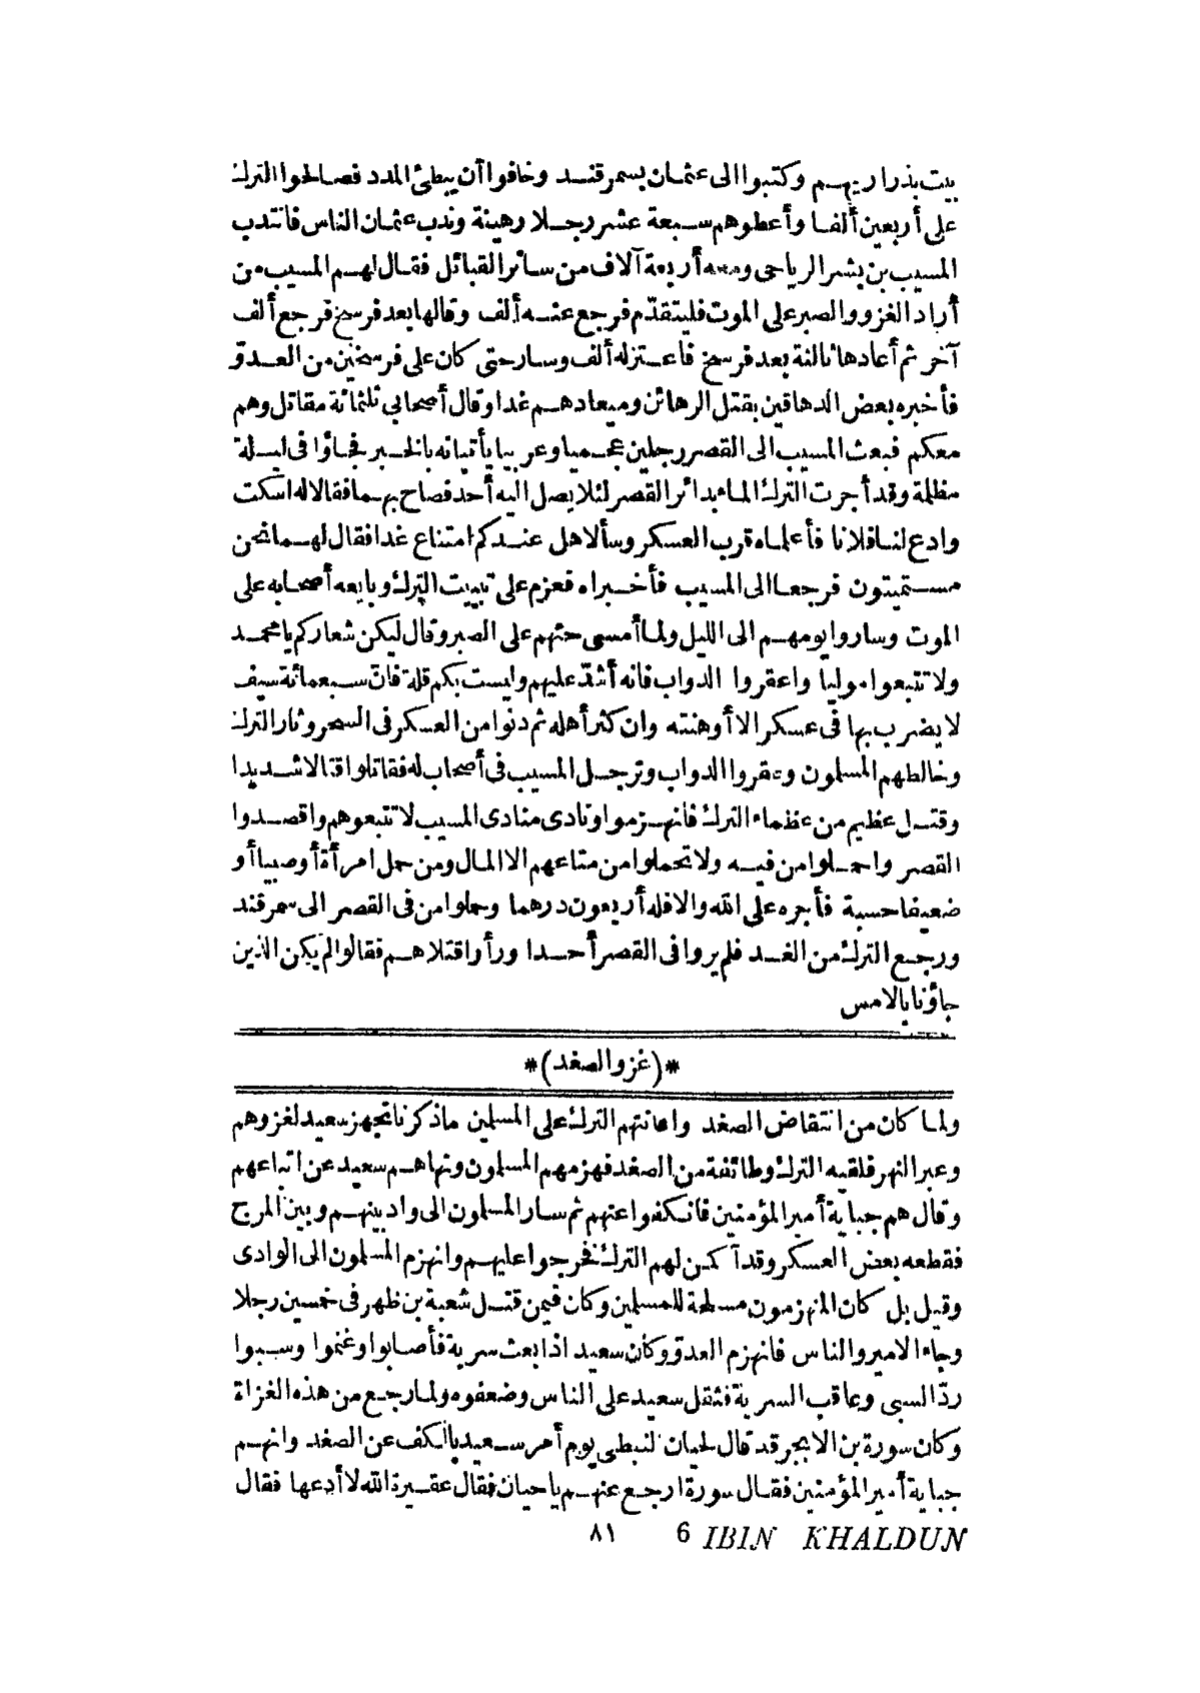 بيت بذراريهم وكتبوا الى عثمان بسمرقند وخافوا أن يبطئ المدد فصالحوا الترك
على أربعين ألفا وأعطوهم سبعة عشر رجلا رهينة وندب عثمان الناس فانتدب
المسيب بن بشر الرياحى ومعه أربعة آلاف من سائر القبائل فقال لهم المسيب من
أراد الغزو والصبر على الموت فليتقدّم فرجع عنه ألف وقالها بعد فرسخ فرجع ألف
آخر ثم أعادها ثالثة بعد فرسخ فاعتزله ألف وسار حتى كان على فرسخين من العدوّ
فأخبره بعض الدهاقين بقتل الرهائن وميعادهم غدا وقال أصحابي ثلثمائة مقاتل وهم
معكم فبعث المسيب الى القصر رجلين عجميا وعربيا يأتيانه بالخبر فجاؤا فى ليلة
مظلمة وقد أجرت الترك الماء بدائر القصر لئلا يصل اليه أحد فصاح بهما فقالا له اسكت
وادع لنا فلانا فأعلماه قرب العسكر وسألا هل عندكم امتناع غدا فقال لهما نحن
مستميتون فرجعا الى المسيب فأخبراه فعزم على تبييت الترك وبايعه أصحابه على
الموت وساروا يومهم الى الليل ولما أمسى حثهم على الصبر وقال ليكن شعاركم يا محمد
ولا تتبعوا موليا واعقروا الدواب فانه أشدّ عليهم وليست بكم قلة فانّ سبعمائة سيف
لا يضرب بها فى عسكر الا أوهنته وان كثر أهله ثم دنوا من العسكر فى السحر وثار الترك
وخالطهم المسلمون وعقروا الدواب وترجل المسيب فى أصحاب له فقاتلوا قتالا شديدا
وقتل عظيم من عظماء الترك فانهزموا ونادى منادى المسيب لا تتبعوهم واقصدوا
القصر واحملوا من فيه ولا تحملوا من متاعهم الا المال ومن حمل امرأة أو صبيا أو
ضعيفا حسبة فأجره على الله والا فله أربعون درهما وحملوا من فى القصر الى سمرقند
ورجع الترك من الغد فلم يروا فى القصر أحدا ورأوا قتلاهم فقالوا لم يكن الذين
جاؤنا بالامس
*(غزو الصغد)*
ولما كان من انتقاض الصغد واعانتهم الترك على المسلمين ماذكرنا تجهز سعيد لغزوهم
وعبر النهر فلقيه الترك وطائفة من الصغد فهزمهم المسلمون ونهاهم سعيد عن اتباعهم
وقال هم جباية أمير المؤمنين فانكفوا عنهم ثم سار المسلمون الى واد بينهم وبين المرج
فقطعه بعض العسكر وقد آكمن لهم الترك فخرجوا عليهم وانهزم المسلمون الى الوادى
وقيل بل كان المنهزمون مسلحة للمسلمين وكان فيمن قتل شعبة بن ظهر فى خمسين رجلا
وجاء الامير والناس فانهزم العدوّ وكان سعيد اذا بعث سرية فأصابوا وغنموا وسبوا
ردّ السبى وعاقب السرية فثقل سعيد على الناس وضعفوه ولما رجع من هذه الغزاة
وكان سورة بن الابجر قد قال لحيان النبطى يوم أمر سعيد بالكف عن الصغد وانهم
جباية أمير المؤمنين فقال سورة ارجع عنهم يا حيان فقال عقيرة الله لا أدعها فقال
٨١ 6 IBIN KHALDUN